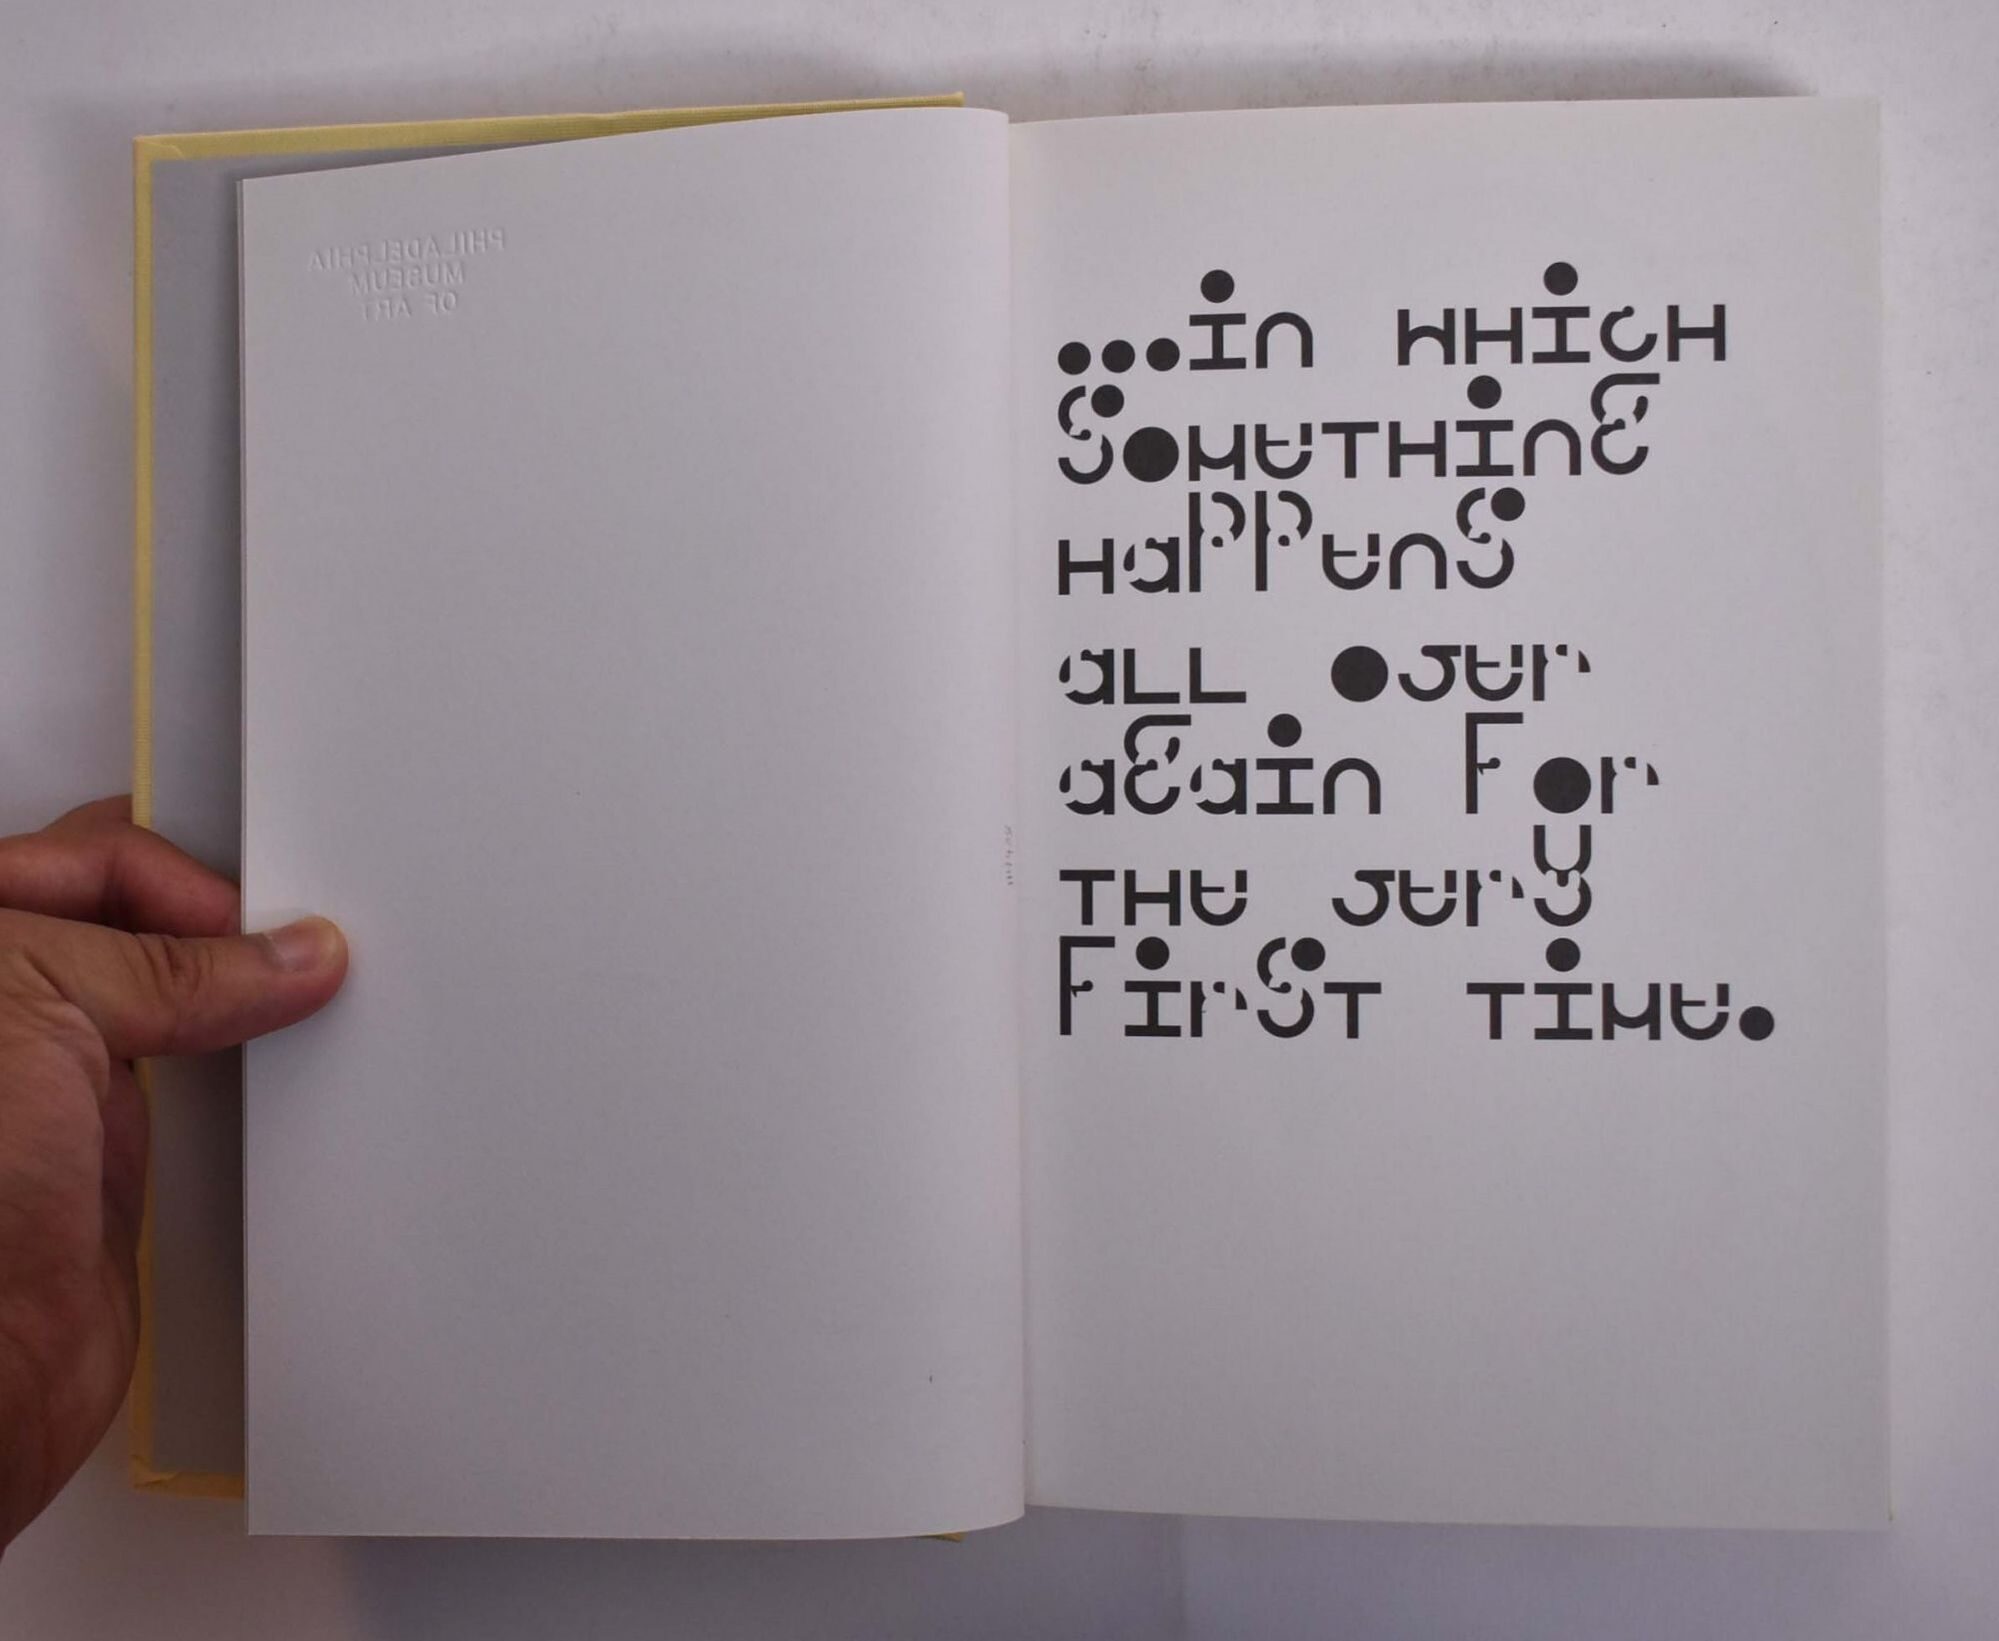 PHILADELPHIA
MUSEUM
OF ART
...in which
Something
happens
all over
again for
the very
first time.